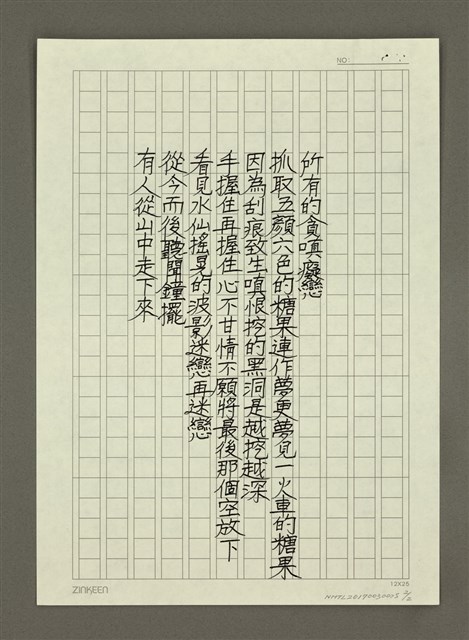 NO:
所有的貪嗔癡戀
抓取五顏六色的糖果連作夢更夢見一火車的糖果
因為刮痕致生嗔恨挖的黑洞是越挖越深
手握住再握住心不甘情不願將最後那個空放下
看見水仙搖晃的波影迷戀再迷戀
從今而後聽聞鐘擺
有人從山中走下來
ZINKEEN
12X25
NMTL20190030015